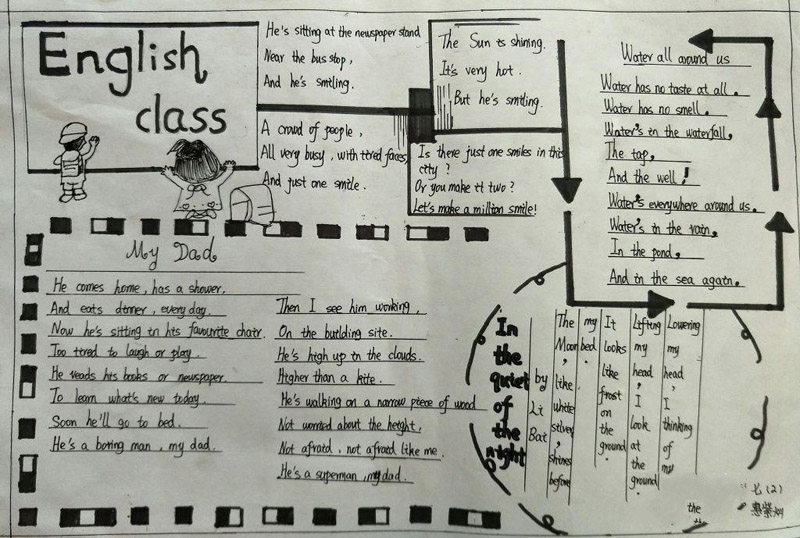 English
class
He's sitting at the newspaper stand
Near the bus stop,
And he's smiling.
A crowd of people,
All very busy, with tired faces,
And just one smile.
The Sun is shining.
It's very hot.
But he's smiling.
Is there just one smiles in this
city?
Or you make it two?
Let's make a million smile!
Water all around us
Water has no taste at all.
Water has no smell.
Water's in the waterfall,
The tap,
And the well!
Water's everywhere around us.
Water's in the rain,
In the pond,
And in the sea again.
My Dad
He comes home, has a shower.
And eats dinner, every day.
Now he's sitting in his favourite chair.
Too tired to laugh or play.
He reads his books or newspaper.
To learn what's new today.
Soon he'll go to bed.
He's a boring man, my dad.
Then I see him working,
On the building site.
He's high up in the clouds.
Higher than a kite.
He's walking on a narrow piece of wood
Not worried about the height,
Not afraid, not afraid like me.
He's a superman, my dad.
In the quiet of the night
by Li Bai
The Moon, like white silver, shines before
my bed.
It looks like frost on the ground.
Lifting my head, I look at the ground.
Lowering my head, I thinking of my
the
七(2)